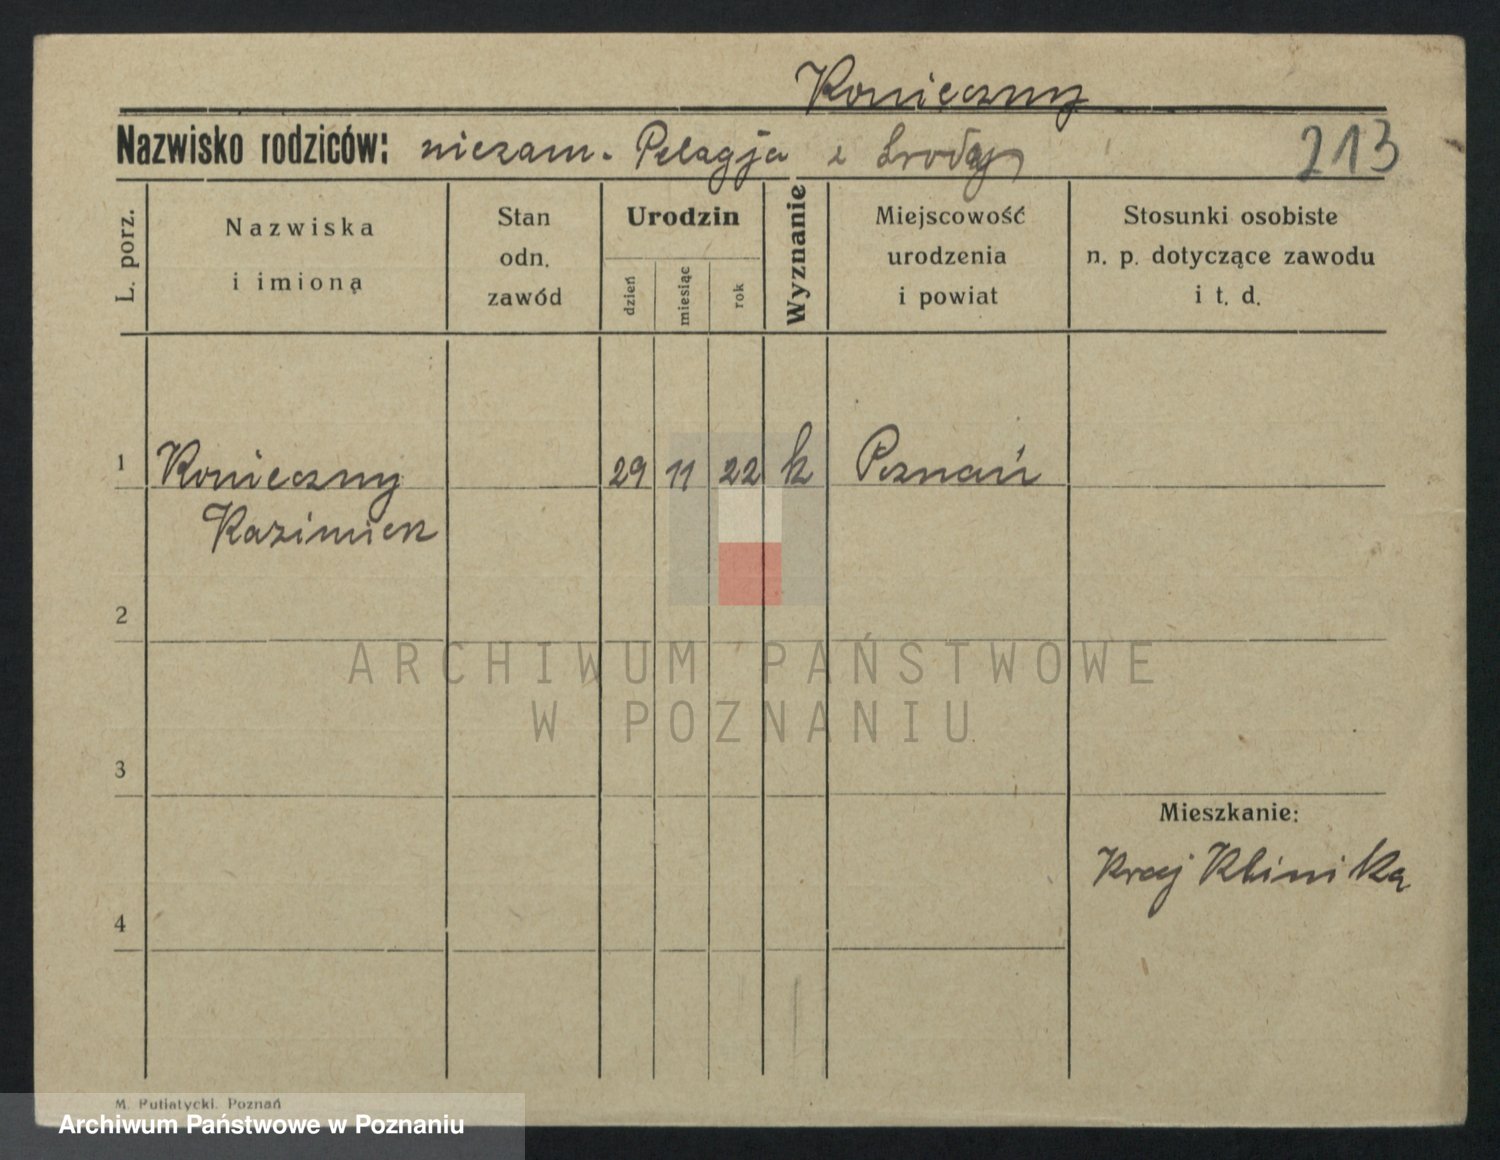 Konieczny
Nazwisko rodziców: niezam. Pelagja z Środy
213
L. porz.
Nazwiska
i imioną
Stan
odn.
zawód
Urodzin
dzień
miesiąc
rok
Wyznanie
Miejscowość
urodzenia
i powiat
Stosunki osobiste
n. p. dotyczące zawodu
i t. d.
1 Konieczny 29 11 22 k Poznań
Kazimierz
2
ARCHIWUM PAŃSTWOWE
W POZNANIU
3
Mieszkanie:
Kraj Klinika
4
M. Putiatycki. Poznań
Archiwum Państwowe w Poznaniu